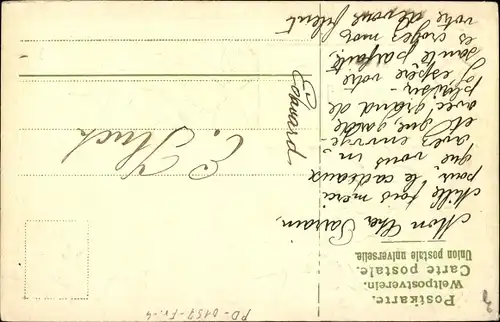 Postkarte.
Weltpostverein.
Carte postale.
Union postale universelle.
Mon cher Parrain,
Mille fois merci
pour le cadeaux
que vous m'
avez envoyé
et que, garde,
avec grand de
plaisir.
J'espère votre
santé parfaite,
es croyez moi
votre dévoué filleul
Edouard
E. Stuck
PD-0157-Fv-4